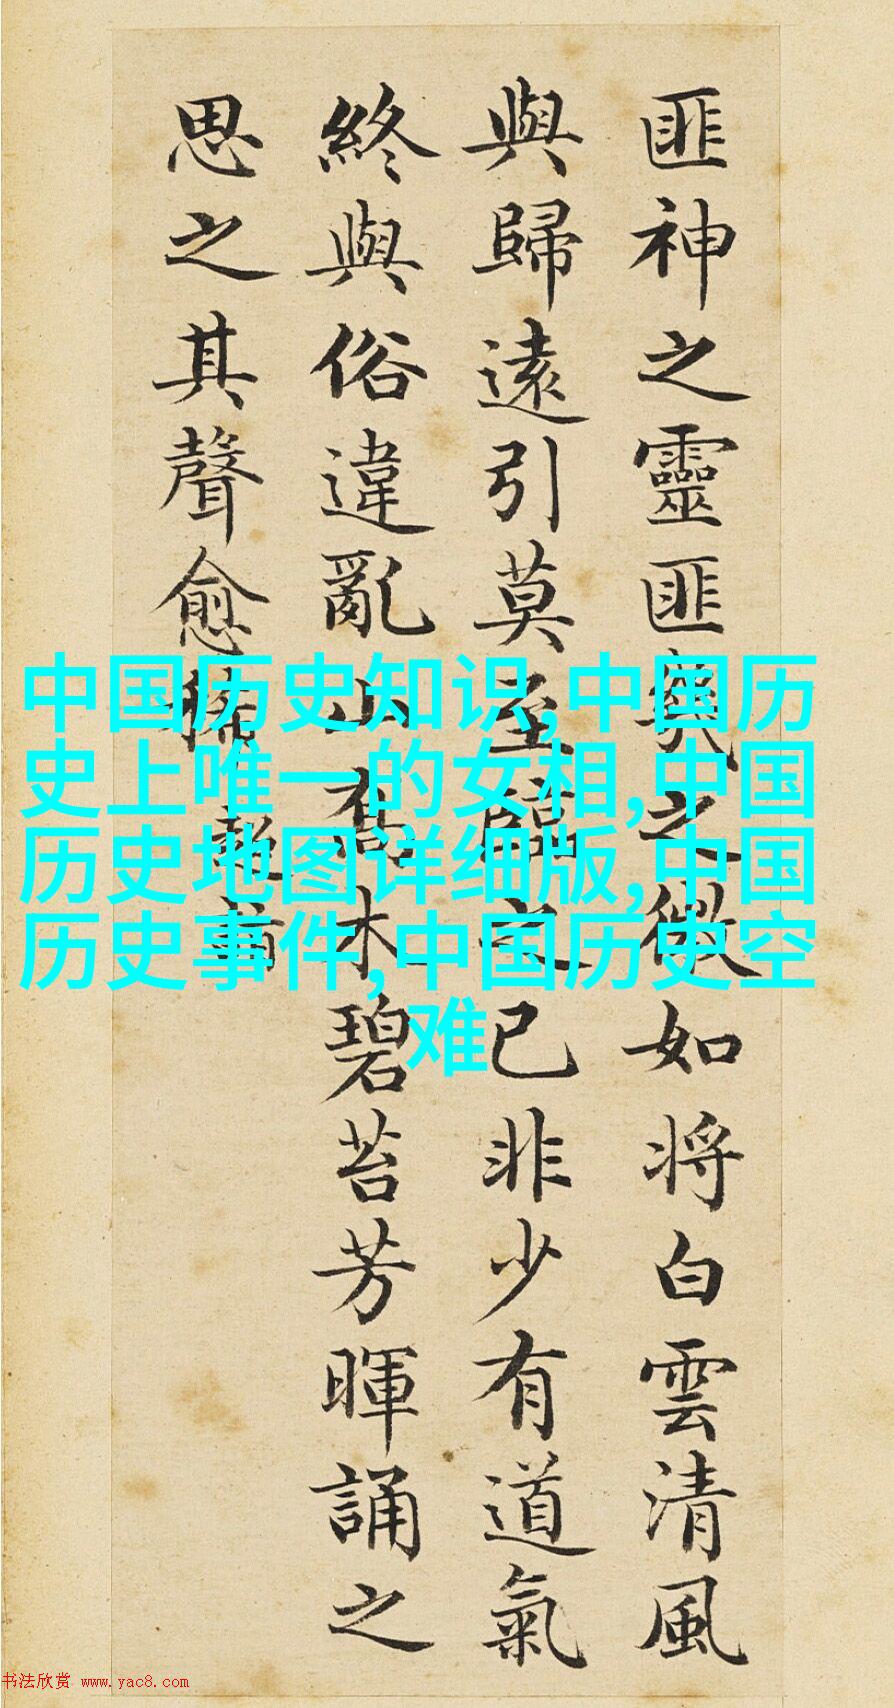 匪神之靈匪之微如將白雲清風
與歸遠引莫至臨之已非少有道氣
終與俗違亂山喬木碧苔芳暉誦之
思之其聲愈稀 超詣
中国历史知识,中国历
史上唯一的女相,中国
历史地图详细版,中国
历史事件,中国历史空
难
书法欣赏 www.yac8.com